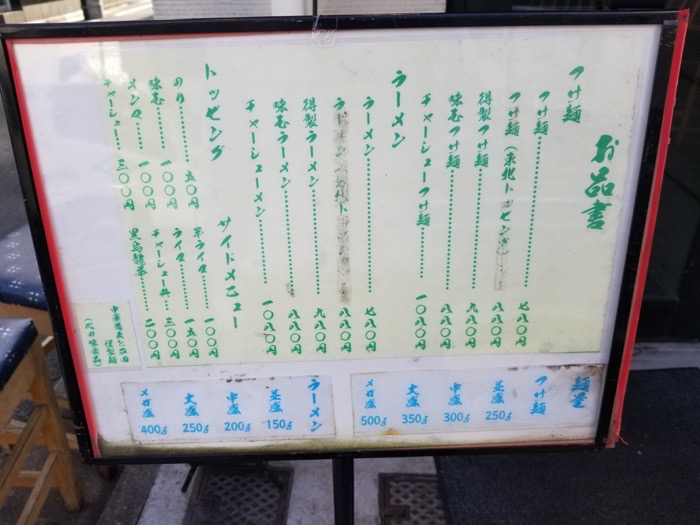 お品書
つけ麺
つけ麺………七八〇円
つけ麺(東北トッピング)………八八〇円
得製つけ麺………九八〇円
味玉つけ麺………八八〇円
チャーシューつけ麺………一〇八〇円
ラーメン
ラーメン………七八〇円
八八〇円
得製ラーメン………九八〇円
味玉ラーメン………八八〇円
チャーシューメン………一〇八〇円
トッピング
のり………一五〇円
味玉………一〇〇円
メンマ………一〇〇円
チャーシュー………三〇〇円
サイドメニュー
半ライス………一〇〇円
ライス………一五〇円
チャーシュー丼………三〇〇円
黒烏龍茶………二〇〇円
麺量
つけ麺
並盛 250g
中盛 300g
大盛 350g
メガ盛 500g
ラーメン
並盛 150g
中盛 200g
大盛 250g
メガ盛 400g